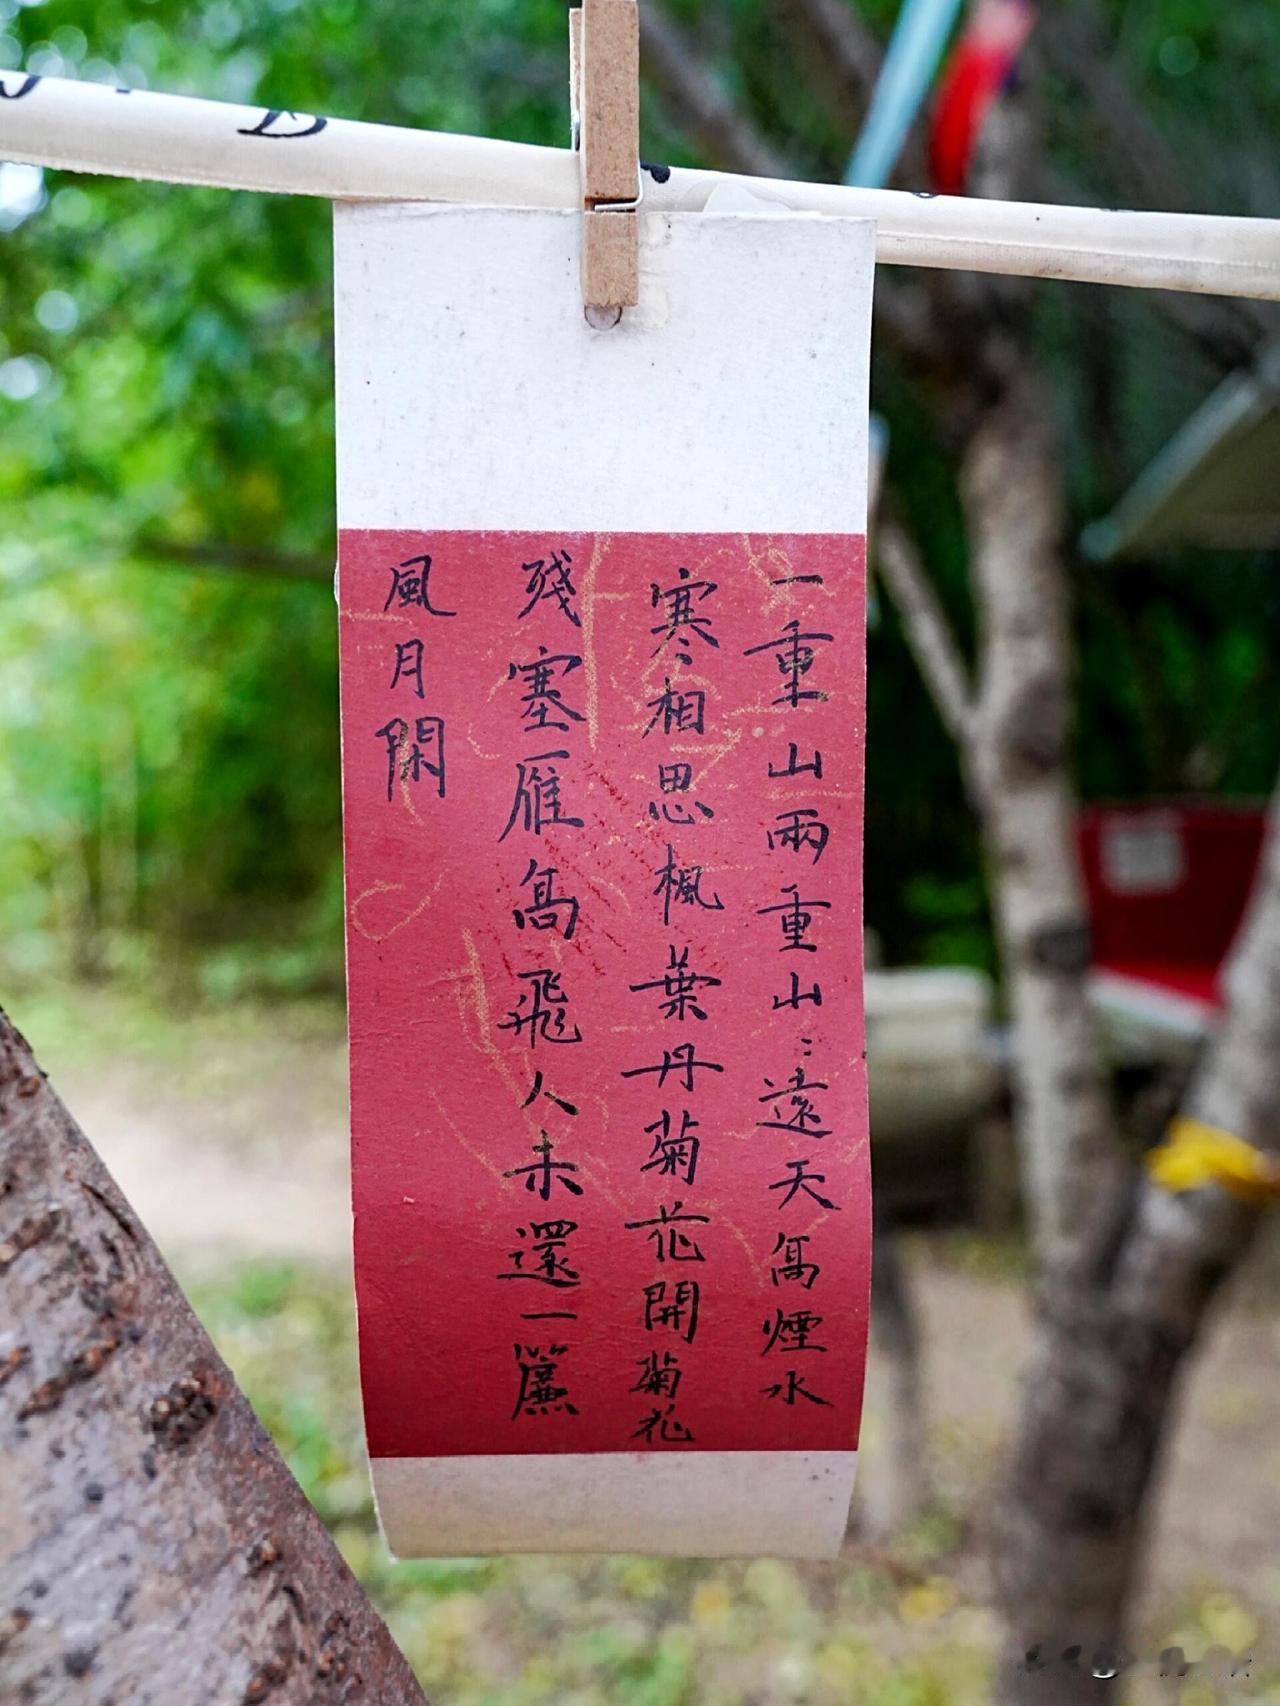 一重山兩重山ㄑ遠天高煙水
寒相思楓葉丹菊花開菊花
殘塞雁高飛人未還一簾
風月閑